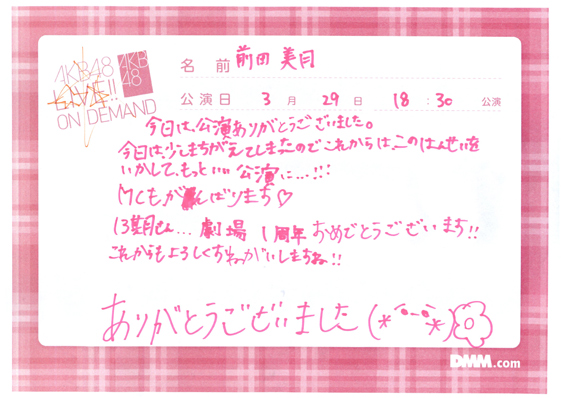 AKB48
LIVE!!
ON DEMAND
AKB
48
名 前 前田 美月
公演日 3 月 29 日 18 : 30 公演
今日は、公演ありがとうございました。
今日は、少しまちがえてしまったのでこれからは、このはんせいを
いかして、もっといい 公演に...!!!
MCもがんばります♡
13期さん... 劇場 1周年 おめでとうございます!!
これからもよろしくおねがいしますね!!
ありがとうございました(*^-^*)
DMM.com